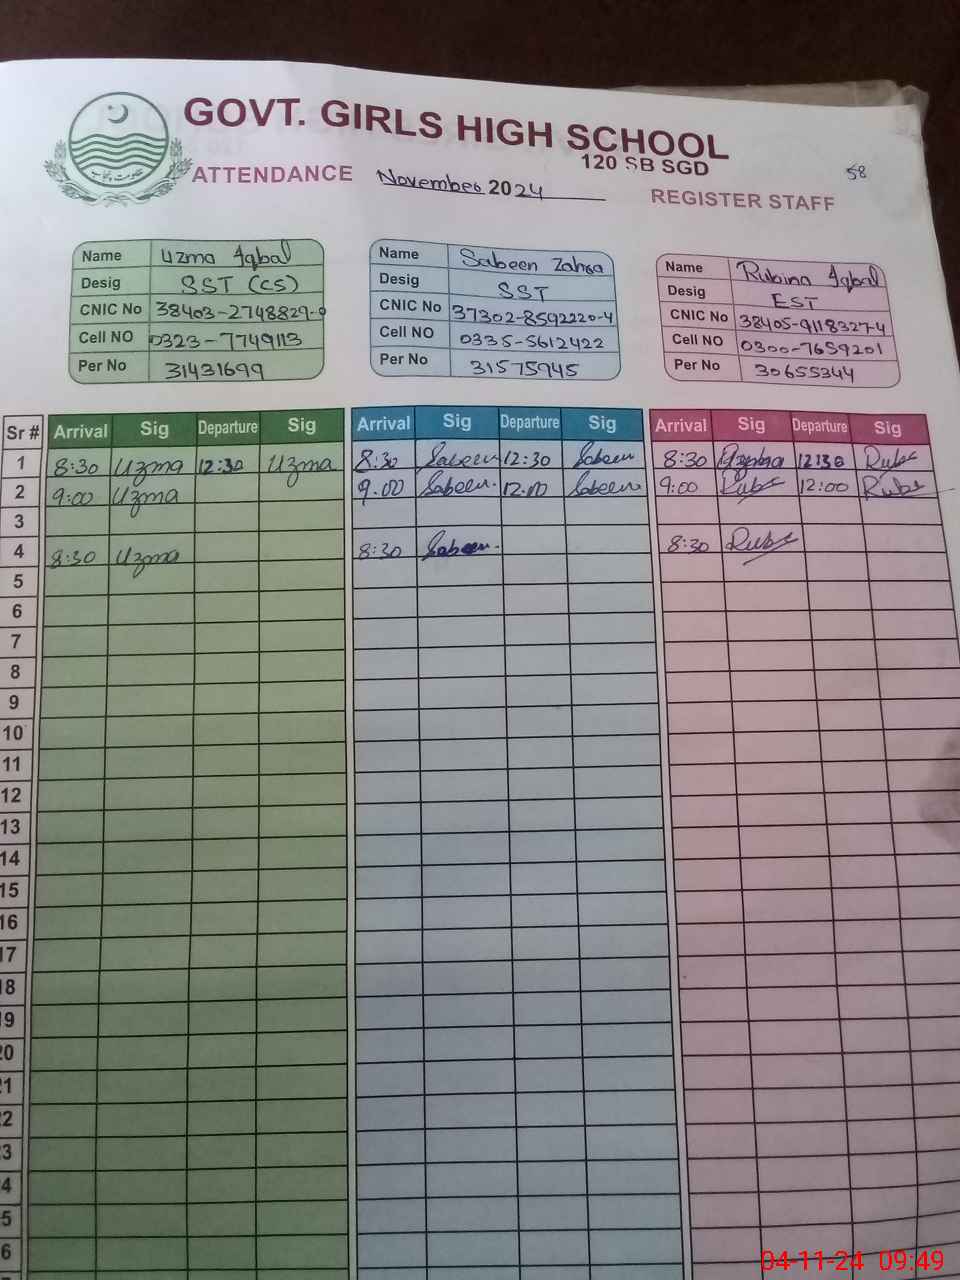 GOVT. GIRLS HIGH SCHOOL
120 SB SGD
58
ATTENDANCE November 2024 REGISTER STAFF
حکومت پنجاب
Name Uzma Iqbal
Desig SST (CS)
CNIC No 38403-2748829-0
Cell NO 0323-7749113
Per No 31431699
Name Sabeen Zahra
Desig SST
CNIC No 37302-8592220-4
Cell NO 0335-5612422
Per No 31575945
Name Rubina Iqbal
Desig EST
CNIC No 38405-9118327-4
Cell NO 0300-7659201
Per No 30655344
Sr # Arrival Sig Departure Sig Arrival Sig Departure Sig Arrival Sig Departure Sig
1 8:30 Uzma 12:30 Uzma 8:30 Sabeen 12:30 Sabeen 8:30 12:30 Rubi
2 9:00 Uzma 9.00 Sabeen 12:00 Sabeen 9:00 Rubi 12:00 Rubi
3
4 8:30 Uzma 8:30 Sabeen 8:30 Rubi
5
6
7
8
9
10
11
12
13
14
15
16
17
18
19
20
21
22
23
24
25
26
04-11-24 09:49